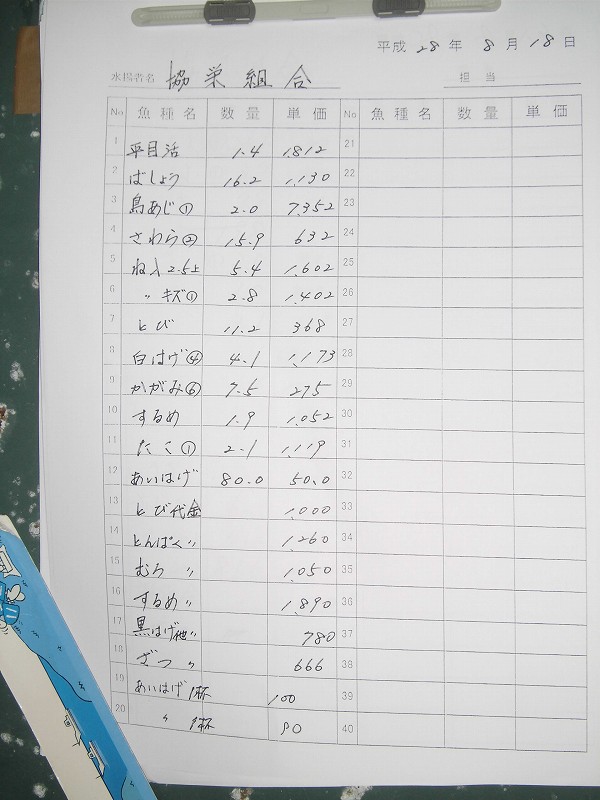 平成 28 年 8 月 18 日
水揚者名 協栄組合 担当
No 魚種名 数量 単価 No 魚種名 数量 単価
1 平目活 1.4 1,812 21
2 ばしょう 16.2 1,130 22
3 島あじ① 2.0 7,352 23
4 さわら② 15.9 632 24
5 ね入2.5上 5.4 1,602 25
6 〃 キズ① 2.8 1,402 26
7 とび 11.2 368 27
8 白はげ④ 4.1 1,173 28
9 かがみ⑥ 7.5 275 29
10 するめ 1.9 1,052 30
11 たこ① 2.1 1,119 31
12 あいはげ 80.0 50.0 32
13 とび代金 1,000 33
14 とんぱく 〃 1,260 34
15 むろ 〃 1,050 35
16 するめ 〃 1,890 36
17 黒はげ他 〃 780 37
18 ざつ 〃 666 38
19 あいはげ 1杯 100 39
20 〃 1杯 90 40